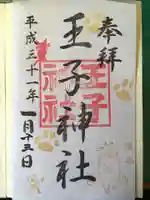 奉拝
王子神社
平成三十一年
一月十三日